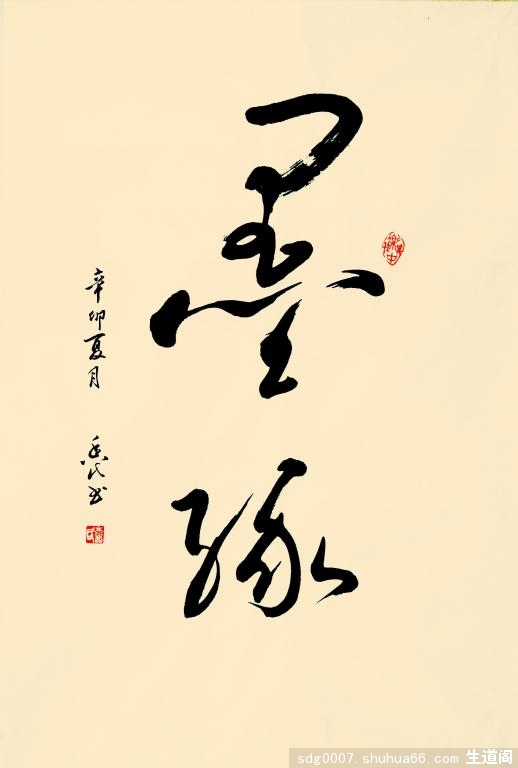 墨缘
辛卯夏月
书
sdg0007.shuhua66.com 生道阁